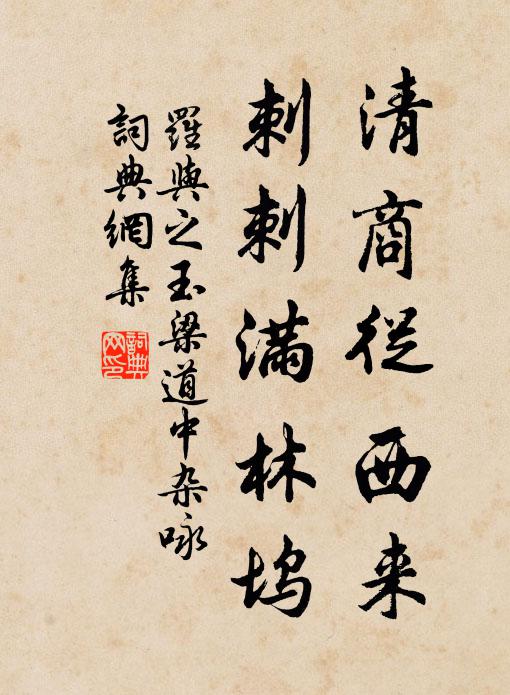 清商從西来
刺刺满林坞
羅與之玉梁道中杂咏
詞典網集
詞典网印